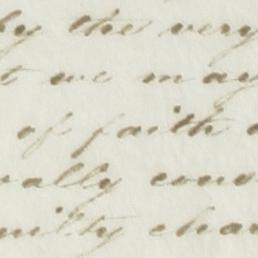 by the very
we may
of faith
ally con
mility cha